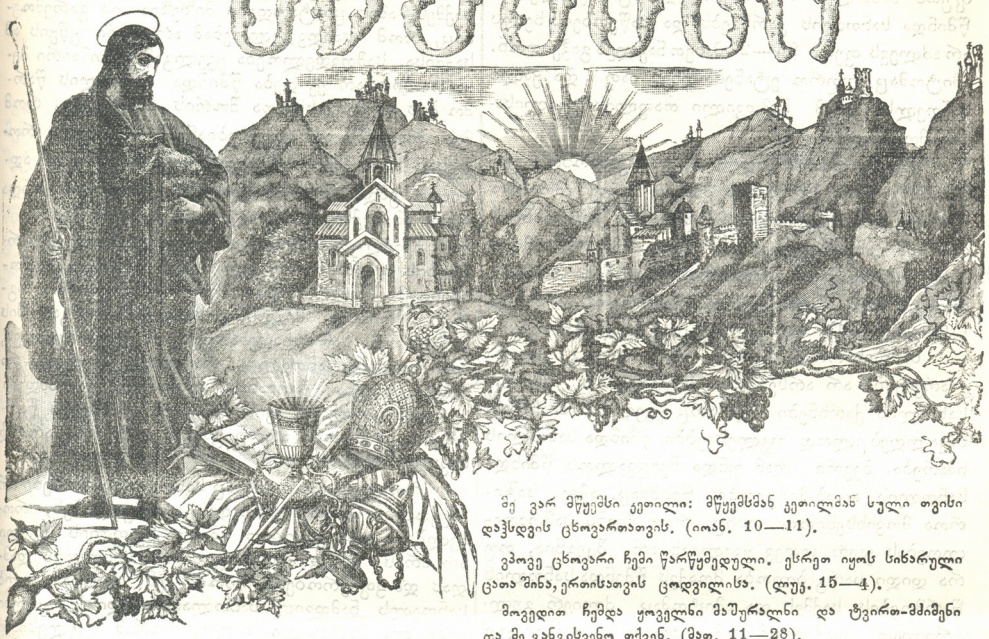 მე ვარ მწყემსი კეთილი: მწყემსმან კეთილმან სული თვისი
დაჰსდვის ცხოვართათვის. (იოან. 10—11).
ვპოვე ცხოვარი ჩემი წარწყმედული. ესრეთ იყოს სიხარული
ცათა შინა, ერთისათვის ცოდვილისა. (ლუკ. 15—4).
მოვედით ჩემდა ყოველნი მაშურალნი და ტვირთ-მძიმენი
და მე განგისვენო თქვენ. (მათ. 11—28).